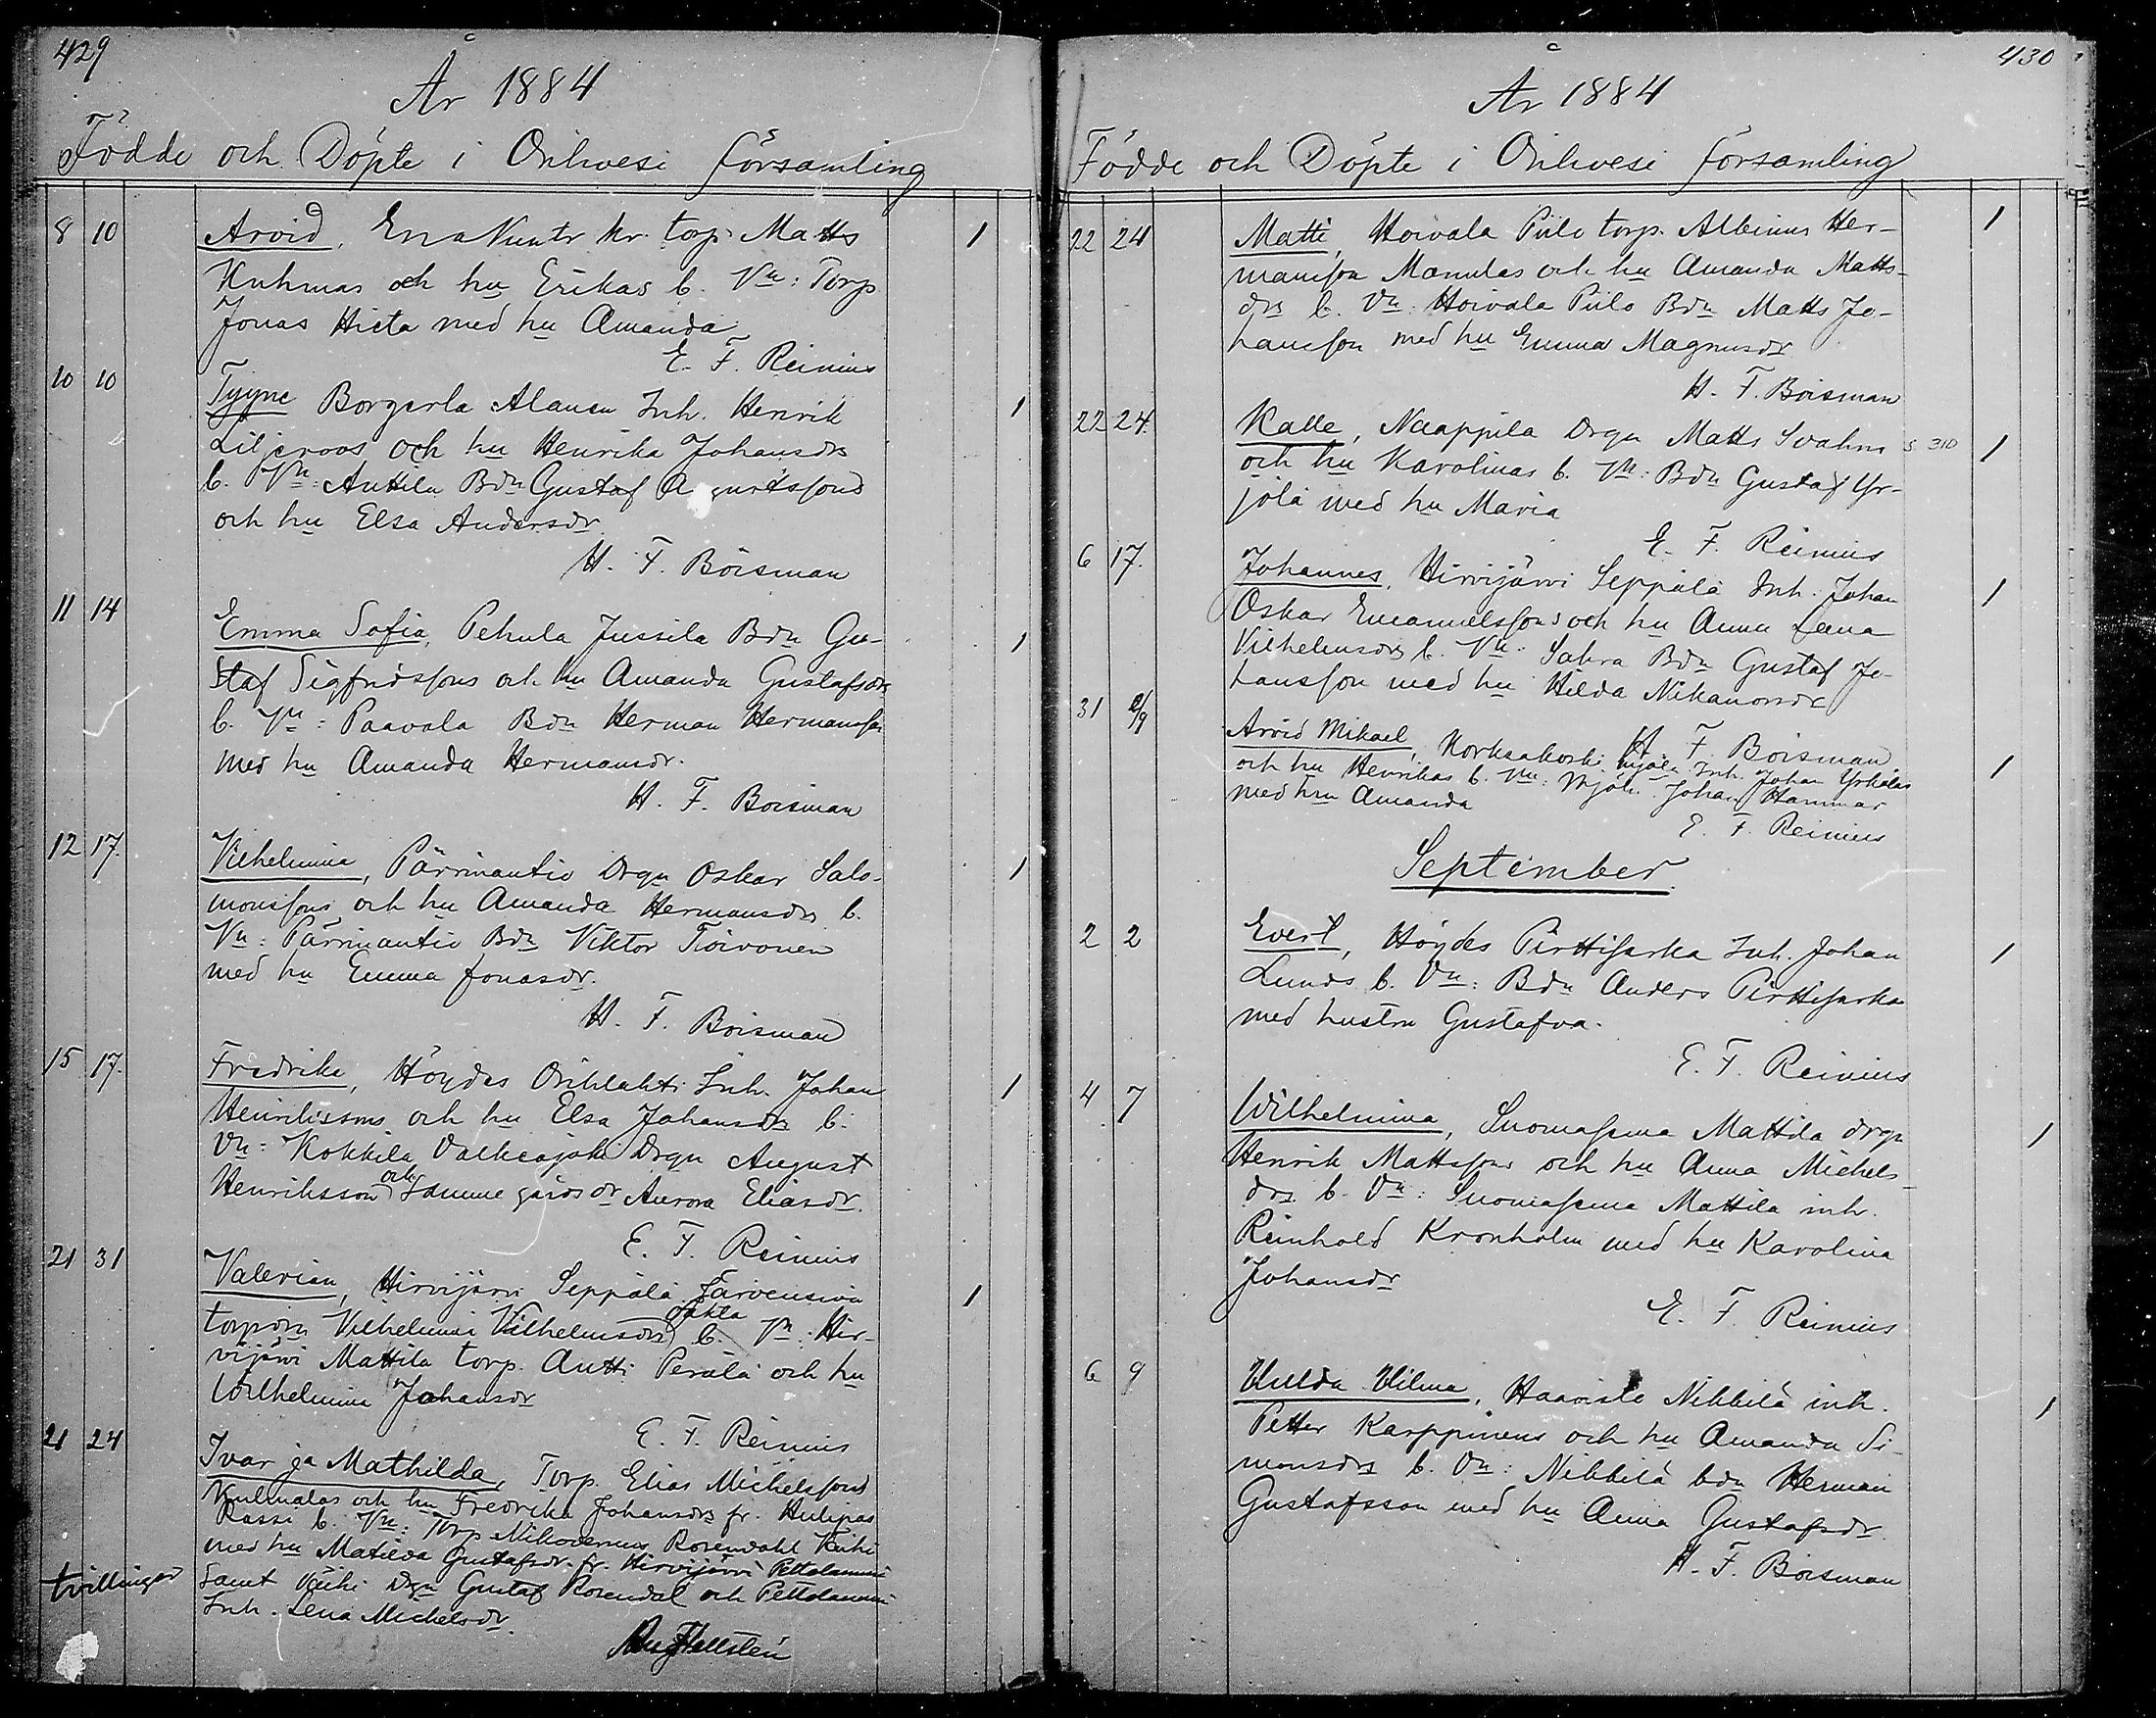 429
År 1884
Födde och Döpte i Orihvesi församling
8 10 Arvid, Erra Kr. torp. Matts 1
Kuhmas och hu Erikas b. Vn: Torp
Jonas Hieta med hu Amanda
E. F. Reinius
10 10 Tyyne Borgerla Alanen Inh. Henrik 1
Liljeroos och hu Henrika Johansdrs
b. Vn: Anttila Bdn Gustaf Agustssons
och hu Elsa Andersdr.
H. F. Boisman
11 14 Emma Sofia, Pehula Jussila Bdn Gu- 1
staf Sigfridssons och hu Amanda Gustafsdrs
b. Vn: Paavola Bdn Herman Hermansson
med hu Amanda Hermansdr.
H. F. Boisman
12 17. Vilhelmina, Pärrinantio Drgn Oskar Salo- 1
monssons och hu Amanda Hermansdrs b.
Vn: Pärrinantio Bdn Viktor Toivonen
med hu Emma Jonasdr.
H. F. Boisman
15 17. Fredrika, Höydes Orihlahti Inh. Johan 1
Henrikssons och hu Elsa Johansdrs b.
Vn: Kokkila Valkeajoki Drgn August
Henriksson och samme gårds dr Aurora Eliasdr.
E. F. Reinius
21 31 Valerian, Hirvijärvi Seppälä Järvensivu 1
torpdrn Vilhelmina Vilhelmsdrs oäkta b. Vn: Hir-
vijärvi Mattila torp. Antti Perälä och hu
Wilhelmina Johansdr
E. F. Reinius
21 24 Ivar ja Mathilda, Torp. Elias Michelssons
Kulmalas och hu Fredrika Johansdrs fr. Hulipas
Rassi b. Vn: Torp Nikodemus Rosendahl
med hu Matilda Gustafsdr. fr. Hirvijärvi
tvillingar samt Drgn Gustaf Rosendal och
Inh. Lena Michelsdr.
Aug Hellstén
430
År 1884
Födde och Döpte i Orihvesi församling
22 24 Matti, Hoivala Piilo torp. Albinus Her- 1
mansson Mannilas och hu Amanda Matts-
drs b. Vn: Hoivala Piilo Bdn Matts Jo-
hansson med hu Emma Magnusdr
H. F. Boisman
22 24. Kalle, Naappila Drgn Matts Svahns s 310 1
och hu Karolinas b. Vn: Bdn Gustaf Yr-
jölä med hu Maria
E. F. Reinius
6 17. Johannes, Hirvijärvi Seppälä Inh. Johan 1
Oskar Emanuelssons och hu Anna Leena
Vilhelmsdrs b. Vn: Sahra Bdn Gustaf Jo-
hansson med hu Hilda Nikanorsdr
H. F. Boisman
31 2/9 Arvid Mikael, Korkeakoski mjöln. Inh. Johan Yrkäläs 1
och hu Henrikas b. Vn: Mjöln. Johan Hammar
med hru Amanda
E. F. Reinius
September.
2 2 Evert, Höydes Pirttisarka Inh. Johan 1
Lunds b. Vn: Bdn Anders Pirttisarka
med hustru Gustafva.
E. F. Reinius
4 7 Wilhelmina, Suomasema Mattila drgn 1
Henrik Mattssons och hu Anna Michels-
drs b. Vn: Suomasema Mattila inh.
Reinhold Kronholm med hu Karolina
Johansdr
E. F. Reinius
6 9 Hulda Vilma, Haavisto Nikkilä inh. 1
Petter Karppinens och hu Amanda Si-
monsdrs b. Vn: Nikkilä bdn Herman
Gustafsson med hu Anna Gustafsdr.
H. F. Boisman